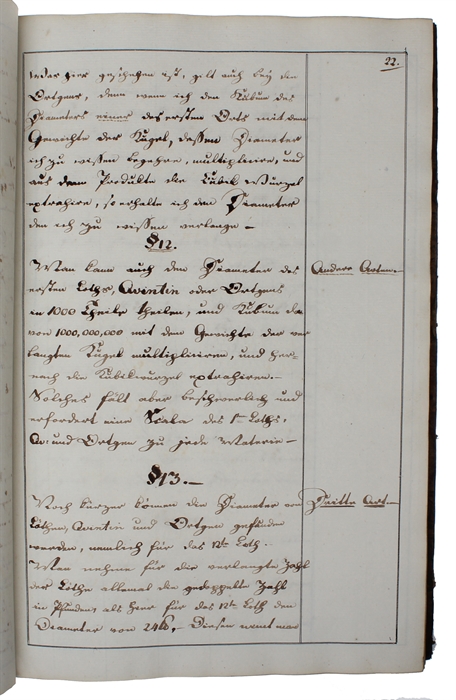 22.
hier geschehen ist, gilt auch bey den
Ortgens, denn wenn ich den Kubum des
Diameters eines des ersten Orts mit dem
Gewichte der Kugel, dessen Diameter
ich zu wissen begehre, multiplicire, und
aus dem Produkte die Kubik Wurzel
extrahire, so erhalte ich den Diameter
den ich zu wissen verlange —
§12.
Man kann auch den Diameter des
Andere Arten —
ersten Loths, Quintin oder Ortgens
in 1000 Theile theilen, und Kubum da
von 1000,000,000 mit dem Gewichte der ver
langten Kugel multipliciren, und her-
nach die Kubikwurzel extrahiren. —
Solches fält aber beschwerlich und
erfordert eine Scala des 1ten Loths,
Q: und Ortgen zu jede Materie —
§13. —
Noch kürzer können die Diameter von
Dritte Art —
Lothen, Quintin und Ortgen gefunden
werden, nemlich für das 12te Loth.
Man nehme für die verlangte Zahl
der Lothe allemal die gedoppelte Zahl
in Pfunden, als hier für das 12te Loth den
Diameter von 24 lb, — Diesen nimt man